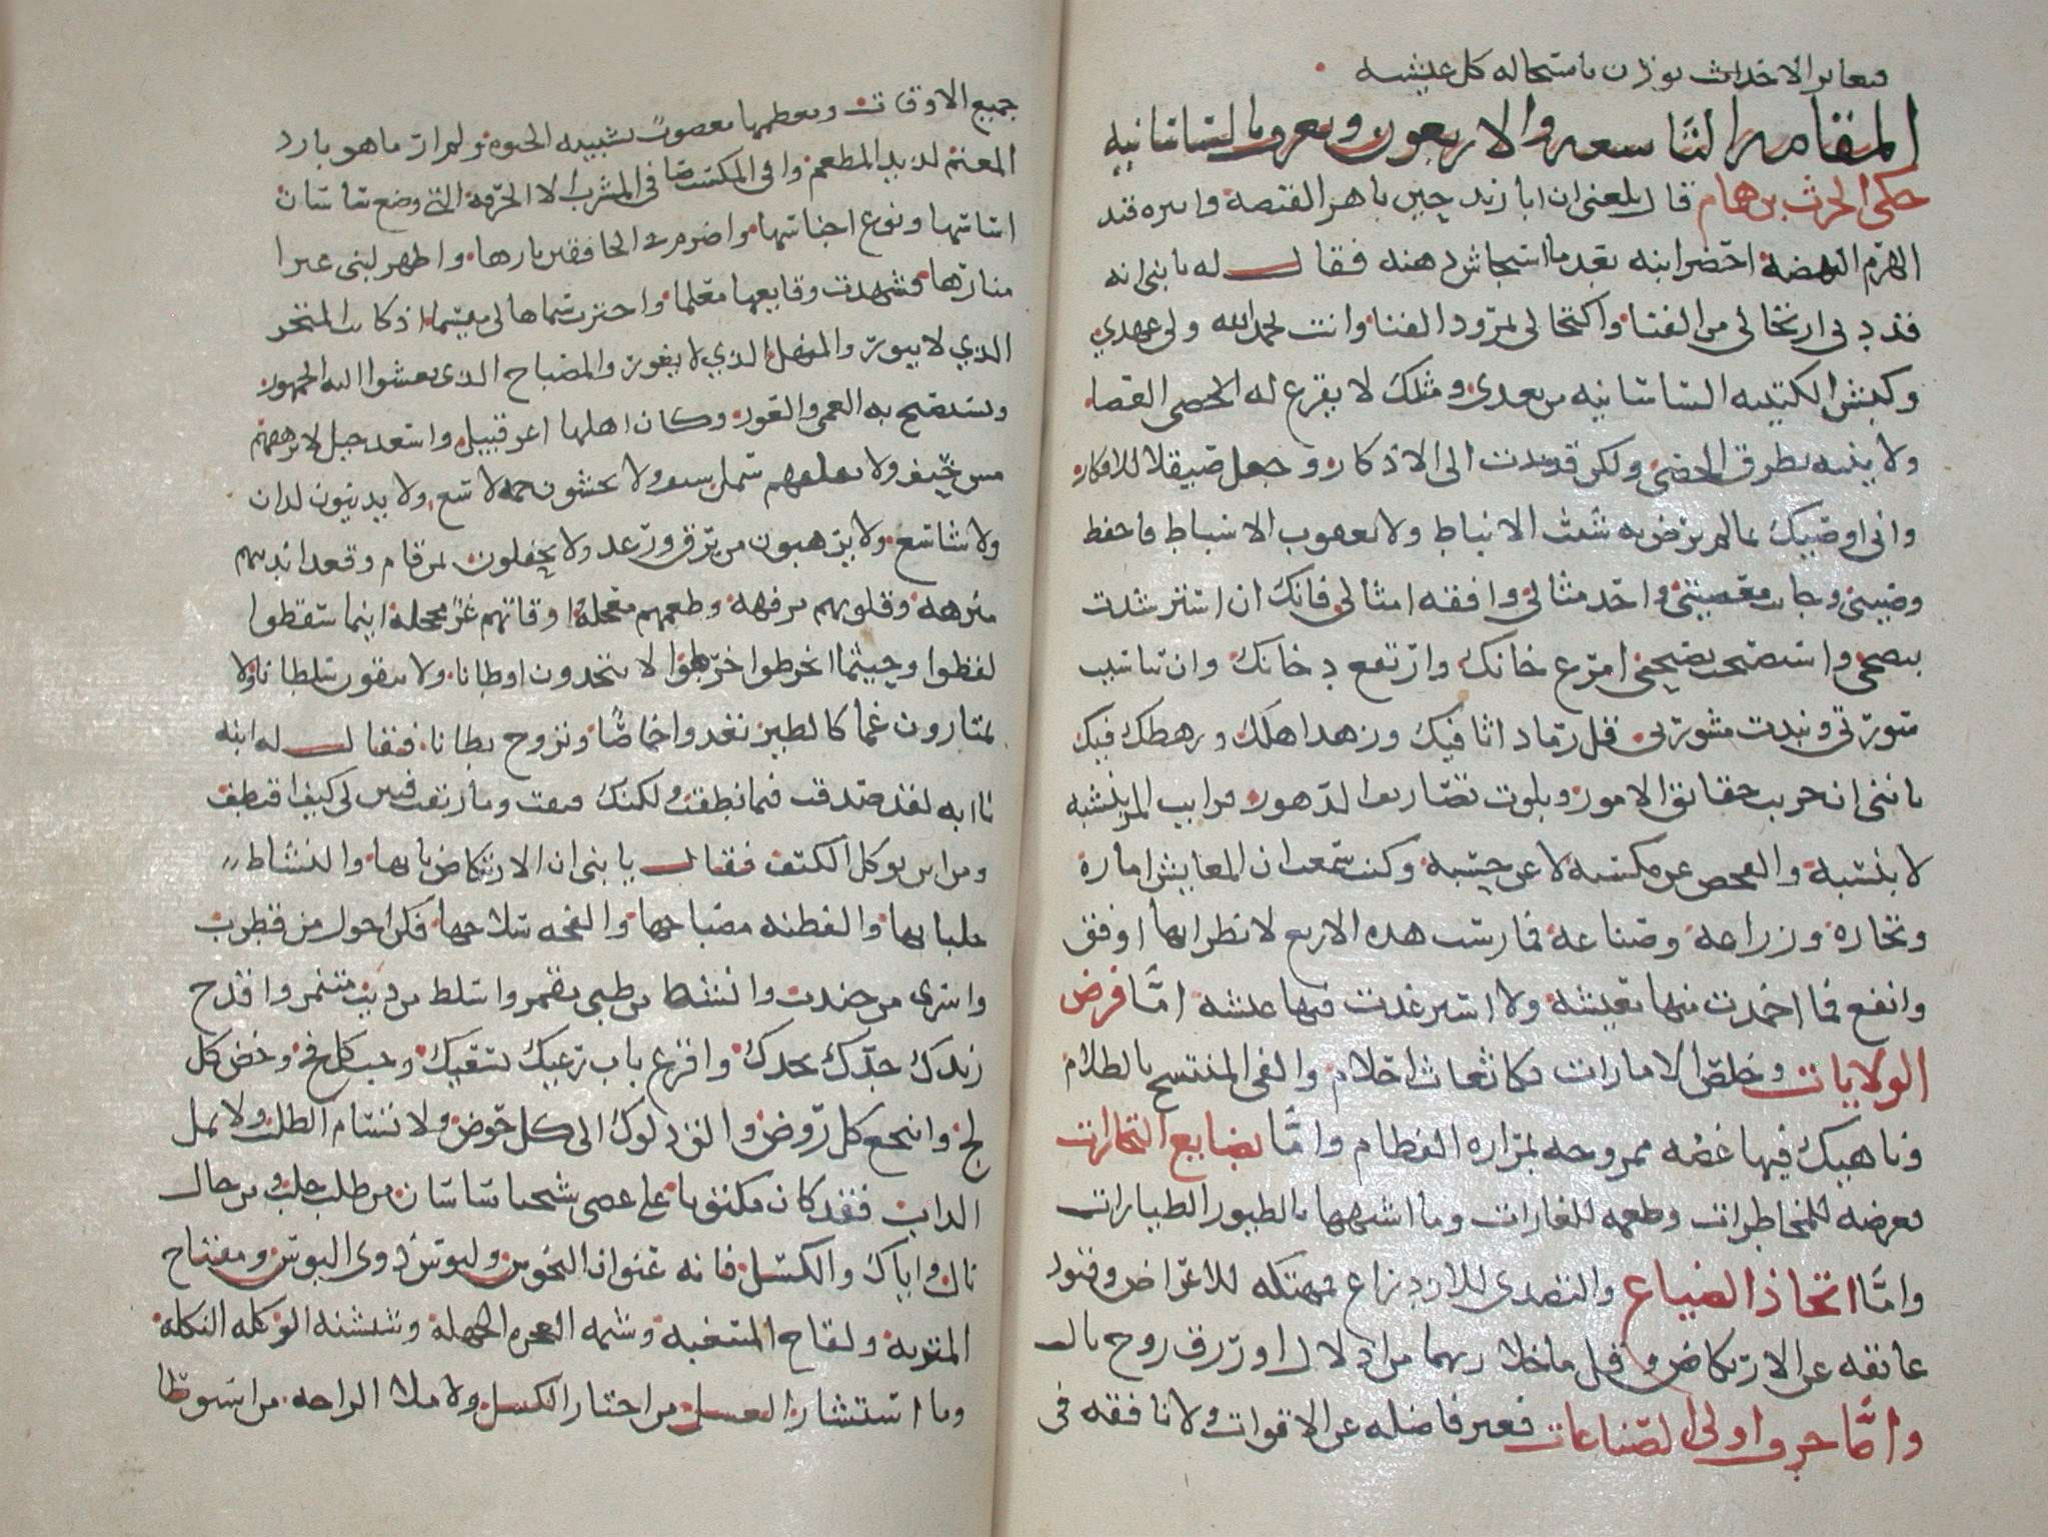 فمعاير الاحداث يوذن باستحاله كل عيشه
المقامه التاسعه والاربعون وتعرف بالساسانيه
حكى الحرث بن همام قال بلغنى ان ابا زيد حين ناهز القبضة وابتزه قيد
الهرم النهضة احضر ابنه بعد ما استجاش ذهنه فقال له يا بنى انه
قد دنى ارتحالى من الفنا واكتحالى بمرود الفنا وانت بحمد الله ولى عهدي
وكبش الكتيبه الساسانيه من بعدى ومثلك لا يقرع له الحصى العصا
ولا ينبه بطرق الحصى ولكن قد ندب الى الاذكار وجعل صيقلا للافكار
وانى اوصيك بما لم يوص به شيث الانباط ولا يعقوب الاسباط فاحفظ
وصيتى وجانب معصيتى واحد مثالى وافقه امثالى فانك ان استرشدت
بنصحى واستصبحت بصبحى امرع خانك وارتفع دخانك وان تناسيت
سورتى ونبذت مشورتى قل رماد اثافيك وزهد اهلك ورهطك فيك
يا بنى انى جربت حقائق الامور وبلوت تصاريف الدهور فرايت المرء بنشبه
لا بنسبه والفحص عن مكسبه لا عن حسبه وكنت سمعت ان المعايش اماره
وتجاره وزراعه وصناعه فمارست هذه الاربع لانظر ايها اوفق
وانفع فما احمدت منها معيشه ولا استرغدت فيها عيشه اما فرض
الولايات وخلس الامارات فكاضغاث احلام والفى المنتسخ بالظلام
وناهيك فيها غصه ممزوجه بمراره الفطام واما بضايع التجارات
فعرضه للمخاطرات وطعمه للغارات وما اشبهها بالطيور الطيارات
واما اتخاذ الضياع والتصدى للازدراع فمهتكه للاعراض وقيود
عائقه عن الارتكاض وقل ما خلا ربها من اذلال او رزق روح بال
واما حرف اولى الصناعات فغير فاضله عن الاقوات ولا نافقه فى
جميع الاوقات ومعظمها معصوب بشبيبه الحيوه ولم ار ما هو بارد
المغنم لذيذ المطعم وافى المكسب صافى المشرب الا الحرفه التى وضع ساسان
اساسها ونوع اجناسها واضرم فى الخافقين نارها واظهر لبنى غبرا
منارها فشهدت وقايعها معلما واخترت سماها لى ميسما اذ كانت المتجر
الذي لا يبور والمنهل الذي لا يغور والمصباح الذى يعشوا اليه الجمهور
ويستصبح به العمى والعور وكان اهلها اعز قبيل واسعد جيل لا يرهقهم
مس حيف ولا يقلقهم سل سيف ولا يخشون حمه لاسع ولا يدينون لدان
ولا شاسع ولا يرهبون من برق ورعد ولا يحفلون بمن قام وقعد انديتهم
منزهه وقلوبهم مرفهه وطعمهم معجله واوقاتهم غر محجله اينما سقطوا
لقطوا وحيثما انخرطوا خرطوا لا يتخذون اوطانا ولا يتقون سلطانا ولا
يمتازون عما كالطير تغدوا خماصا وتروح بطانا فقال له ابنه
يا ابه لقد صدقت فيما نطقت ولكنك رتقت وما فتقت فبين لى كيف اقتطف
ومن اين توكل الكتف فقال يا بنى ان الارتكاض بابها والنشاط
جلبابها والفطنه مصباحها والقحه سلاحها فكن اجول من قطرب
واسرى من جندب وانشط من ظبى مقمر واسلط من ذيب متنمر واقدح
زندك جدك بجدك واقرع باب رعيك بسعيك وجب كل فج وخض كل
لج وانتجع كل روض والق دلوك الى كل حوض ولا تسام الطلب ولا تمل
الداب فقد كان مكتوبا على عصى شيخنا ساسان من طلب جلب ومن جال
نال واياك والكسل فانه عنوان النحوس ولبوس ذوى البوس ومفتاح
المتربه ولقاح المتعبه وشيمه العجزه الجهله وشنشنه الوكله التكله
وما استشار العسل من اختار الكسل ولا ملا الراحه من استوطا